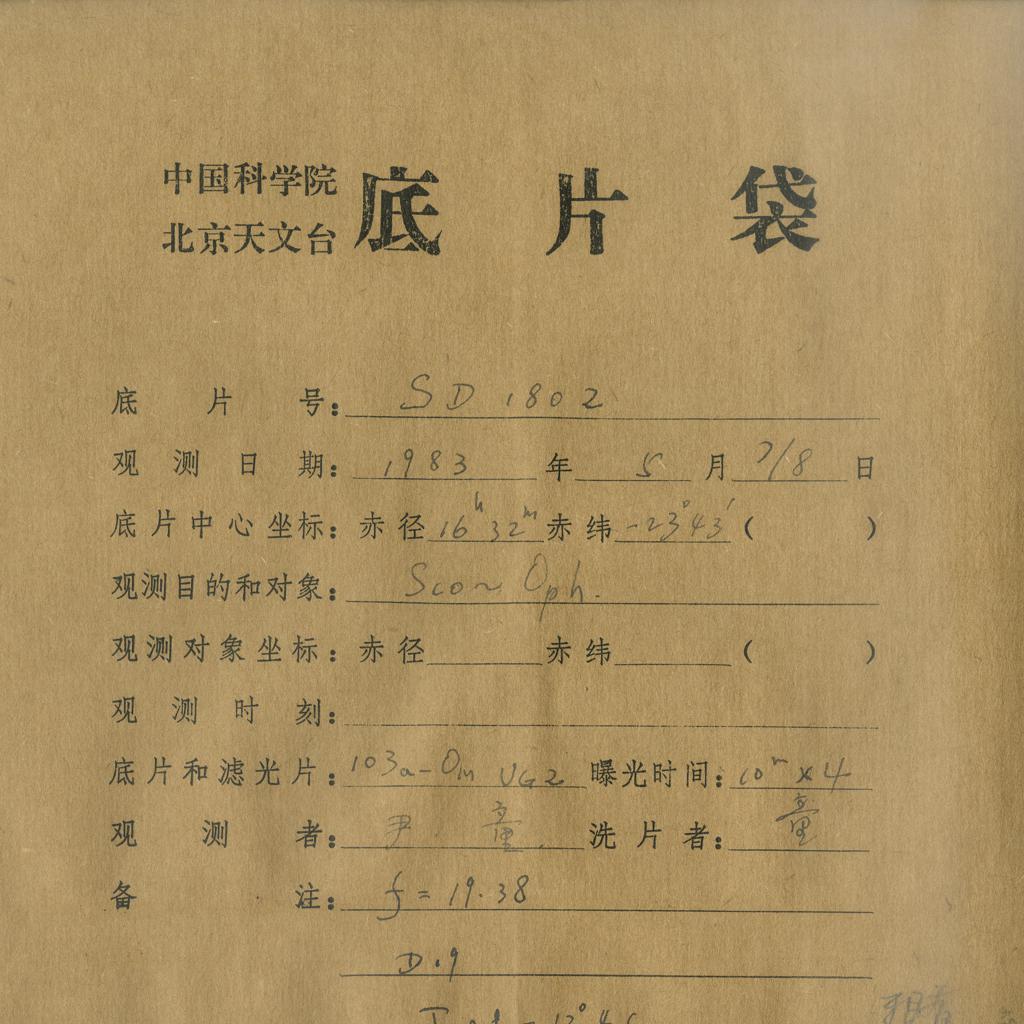 中国科学院
北京天文台
底片袋
底片号: SD 1802
观测日期: 1983 年 5 月 7/8 日
底片中心坐标: 赤径 16h 32m 赤纬 -23°43′ ( )
观测目的和对象: Sco~Oph.
观测对象坐标: 赤径 赤纬 ( )
观测时刻:
底片和滤光片: 103a-O UG2 曝光时间: 10m×4
观测者: 尹. 童. 洗片者: 童
备注: f = 19.38
D.9